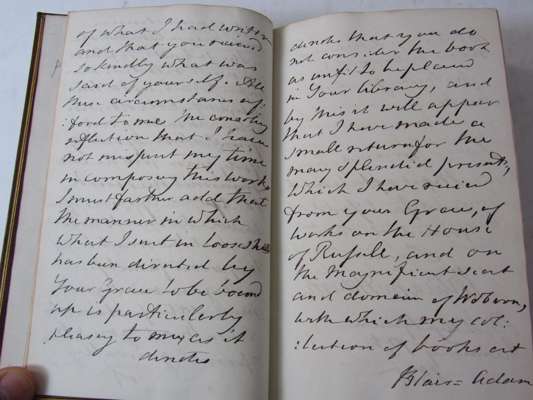 of what I had writen
and that you rec.ed
so kindly what was
said of yourself. All
these circumstances af:
:ford to me the consoling
reflection that I have
not mispent my time
in composing this work.
I must farther add that
the manner in which
what I sent in loose
has been directed by
Your Grace to be bound
up is particularly
pleasing to me, as it
denotes
denotes that you do
not consider the book
as unfit to be placed
in Your library, and
by this it will appear
that I have made a
small return for the
many splendid presents,
which I have rec.ed
from your Grace, of
works on the House
of Russell, and on
the magnificent seat
and domain of Woburn,
with which my col:
:lection of books at
Blair= Adam